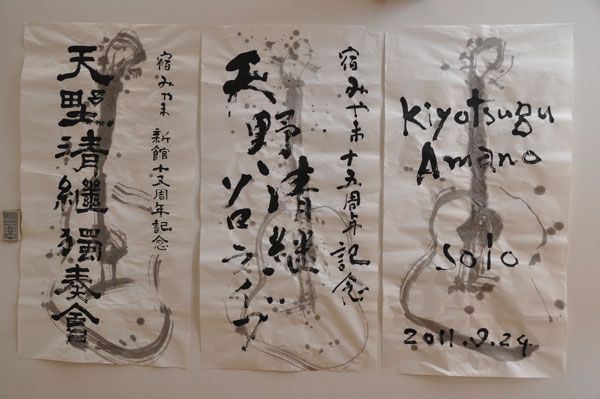 宿みやま 新館十五周年記念
天野清繼獨奏會
宿みやま十五周年記念
天野清継ソロライブ
Kiyotsugu
Amano
solo
2011.9.29.